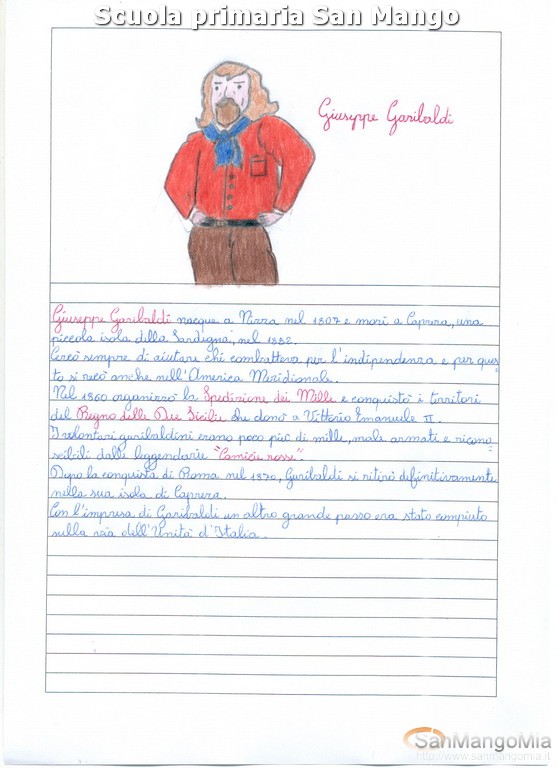 Scuola primaria San Mango
Giuseppe Garibaldi
Giuseppe Garibaldi nacque a Nizza nel 1807 e morì a Caprera, una
piccola isola della Sardegna, nel 1882.
Cercò sempre di aiutare chi combatteva per l'indipendenza e per ques
to si recò anche nell'America Meridionale.
Nel 1860 organizzò la Spedizione dei Mille e conquistò i territori
del Regno delle Due Sicilie che donò a Vittorio Emanuele II.
I volontari garibaldini erano poco più di mille, male armati e ricono
scibili dalle leggendarie "Camicie rosse".
Dopo la conquista di Roma nel 1870, Garibaldi si ritirò definitivamente
nella sua isola di Caprera.
Con l'impresa di Garibaldi un altro grande passo era stato compiuto
sulla via dell'Unità d'Italia.
SanMangoMia
http://www.sanmangomia.it